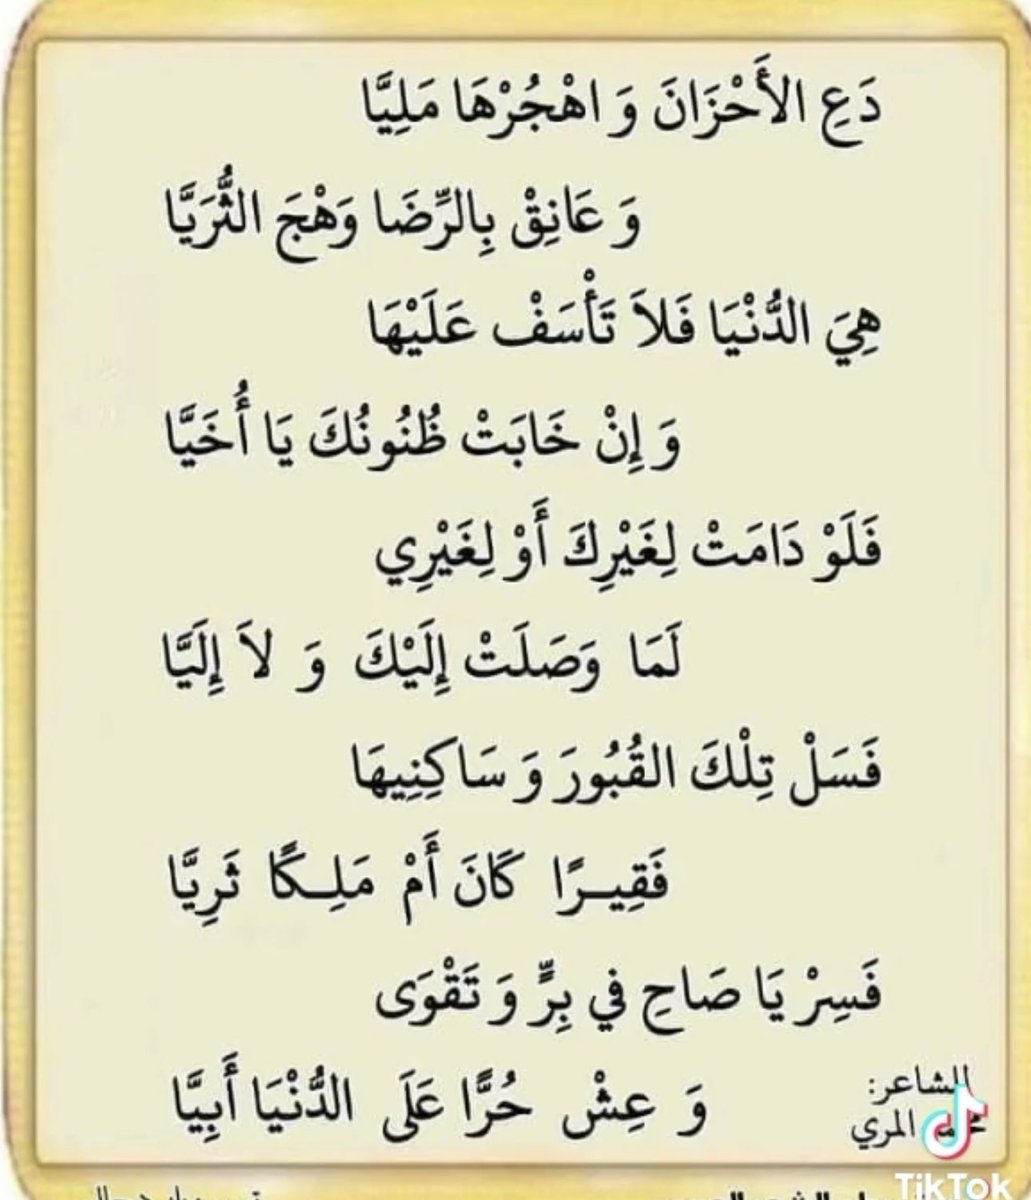 دَعِ الأَحْزَانَ وَ اهْجُرْهَا مَلِيَّا
وَ عَانِقْ بِالرِّضَا وَهْجَ الثُّرَيَّا
هِيَ الدُّنْيَا فَلاَ تَأْسَفْ عَلَيْهَا
وَ إِنْ خَابَتْ ظُنُونُكَ يَا أُخَيَّا
فَلَوْ دَامَتْ لِغَيْرِكَ أَوْ لِغَيْرِي
لَمَا وَصَلَتْ إِلَيْكَ وَ لاَ إِلَيَّا
فَسَلْ تِلْكَ القُبُورَ وَ سَاكِنِيهَا
فَقِيــرًا كَانَ أَمْ مَلِــكًا ثَرِيَّا
فَسِرْ يَا صَاحِ في بِرٍّ وَ تَقْوَى
وَ عِشْ حُرًّا عَلَى الدُّنْيَا أَبِيَّا
الشاعر:
المري
TikTok